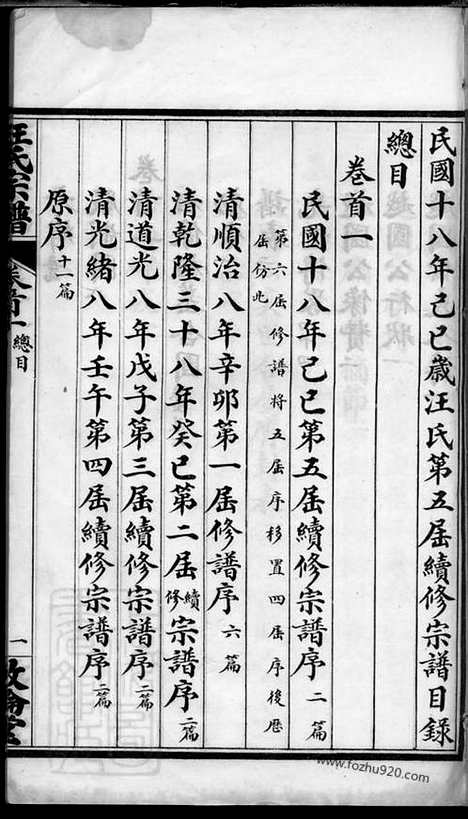 民國十八年己巳歲汪氏第五屆續修宗譜目錄
總目
卷首一
民國十八年己巳第五屆續修宗譜序二篇
第六屆修譜將五屆序移置四屆序後歷
屆仿此
清順治八年辛卯第一屆修譜序六篇
清乾隆三十八年癸巳第二屆續修宗譜序二篇
清道光八年戊子第三屆續修宗譜序二篇
清光緒八年壬午第四屆續修宗譜序二篇
原序十一篇
汪氏宗譜 卷首一 總目 一
www.fozhu920.com